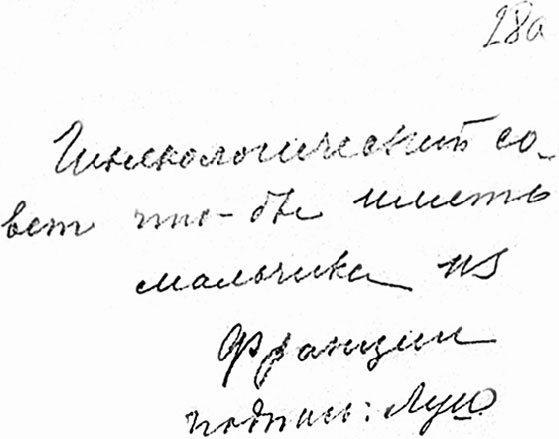 28а
Гинекологический со-
вет что-бы иметь
мальчика из
Франции
подпись: Луи